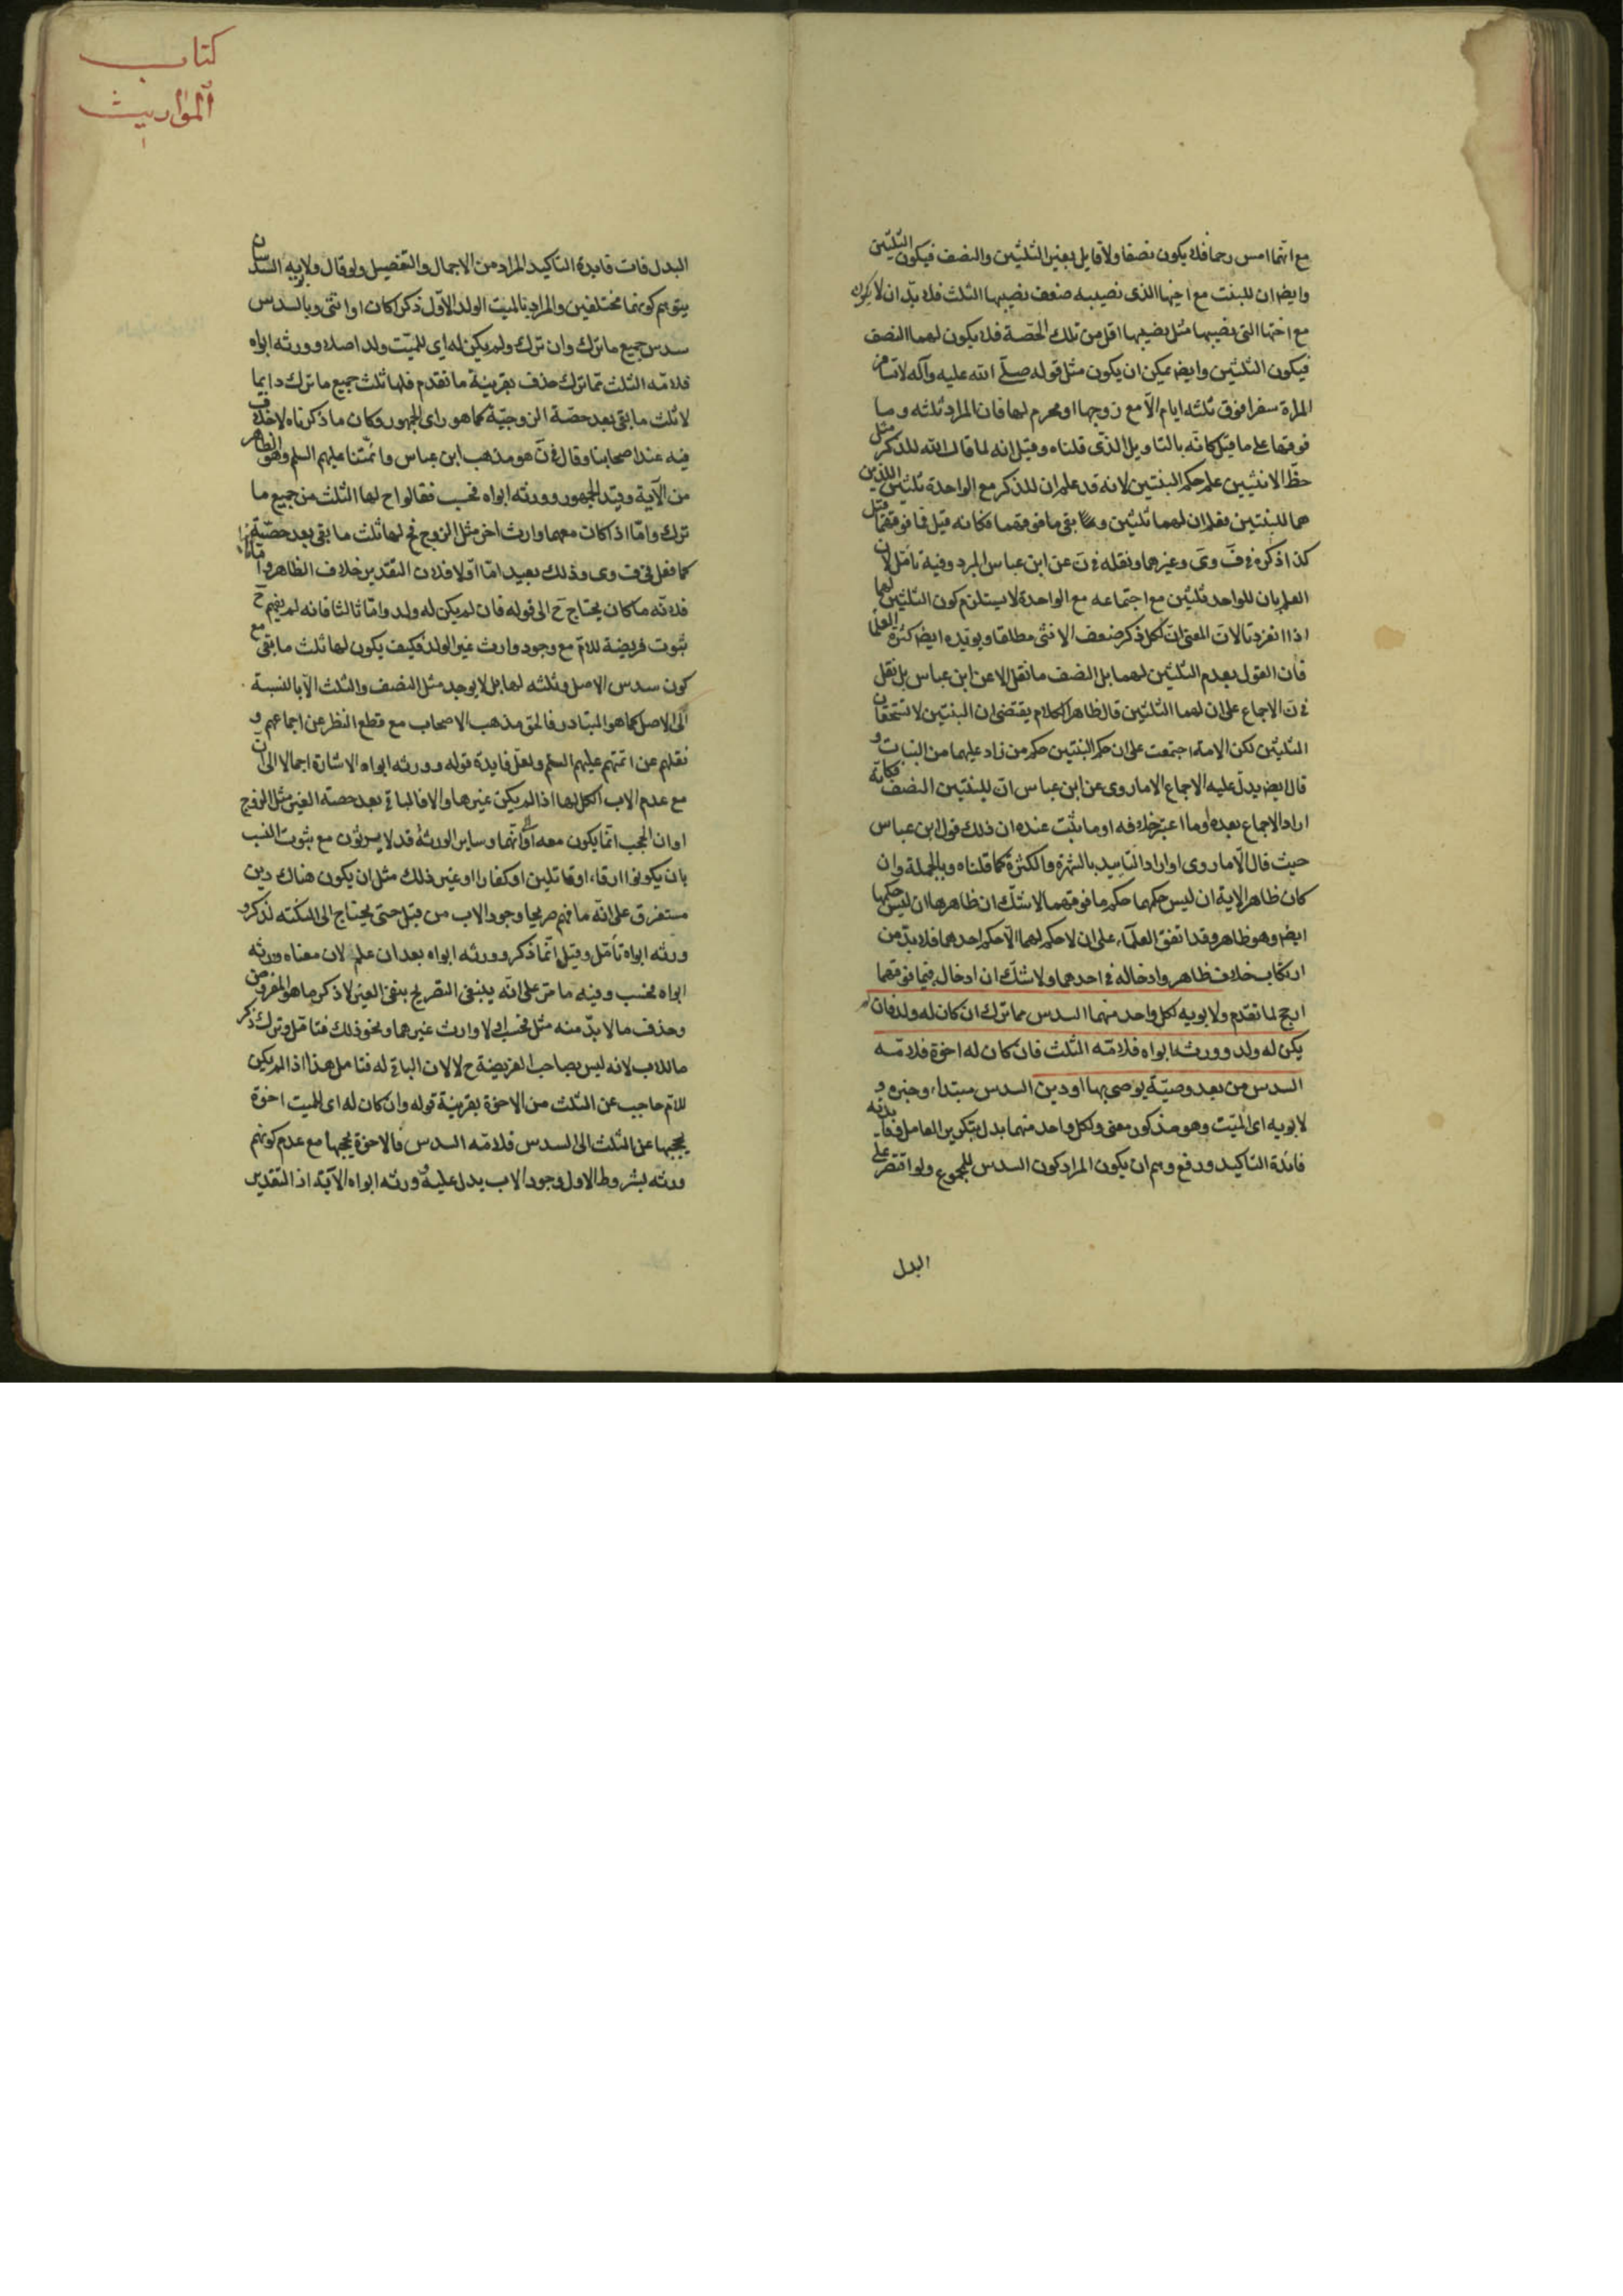 مع انهما امس رحما فلا يكون نصفا ولا قايل بغير الثلثين والنصف فيكون الثلثين
وايضا ان للبنت مع اخيها الذى نصيبه ضعف نصيبها الثلث فلا بدّ ان لا يكون
مع اختها التى نصيبها مثل نصيبها اقل من تلك الحصّة فلا يكون لهما النصف
فيكون الثلثين وايض يمكن ان يكون مثل قوله صلّى الله عليه وآله لا تسافر
المراة سفرا فوق ثلثه ايام الاّ مع زوجها او محرم لها فان المراد ثلثه وما
فوقها على ما قيل كانّه بالتاويل الذّى قلناه وقيل انه لما قال الله للذكر مثل
حظّ الانثيين علم حكم البنتين لانه قد علم ان للذكر مع الواحدة ثلثين اللذين
هما للبنتين فعلم ان لهما ثلثين و بقى ما فوقهما فكانه قيل فما فوقهما قيل
كذا ذكره فى ف وى وغيرهما ونقله فى ن عن ابن عباس المبرد وفيه تامّل لان
العلم بان للواحد ثلثين مع اجتماعه مع الواحدة لا يستلزم كون الثلثين لهما
اذا انفردتا لان المعنى ان لكل ذكر ضعف الانثى مطلقا ويويّده ايض كثرة العلما
فان القول بعدم الثلثين لهما بل النصف ما نقل الا عن ابن عباس بل نقل
فى ن الاجماع على ان لهما الثلثين قال ظاهر الكلام يقتضى ان البنتين لا تستحقان
الثلثين لكن الامة اجتمعت على ان حكم البنتين حكم من زاد عليهما من البنات و
قال ايض يدلّ عليه الاجماع الا ما روى عن ابن عباس ان للبنتين النصف فكانّه
اراد الاجماع بعده او ما اعتبر خلافه او ما ثبت عنده ان ذلك قول ابن عباس
حيث قال الاّ ما روى او اراد التاييد بالشهرة والكثرة كما قلناه وبالجملة وان
كان ظاهر الاية ان ليس حكمهما حكم ما فوقهما لا شكّ ان ظاهرها ان ليس حكمها
ايض وهو ظاهر وقد اتفق العلمآء على ان لا حكم لهما الاّ حكم احدهما فلا بدّ من
ارتكاب خلاف ظاهر وادخاله فى احدهما ولا شكّ ان ادخال فيما فوقهما
ارجح لما تقدّم ولابويه لكل واحد منهما السدس مما ترك ان كان له ولد فان لم
يكن له ولد وورثه ابواه فلامّه الثلث فان كان له اخوة فلامّه
السدس من بعد وصيّة يوصى بها او دين السدس مبتداء وخبره و
لابويه اى الميّت وهو مذكور معنى ولكل واحد منهما بدل بتكرير العامل وفايدته
فائدة التاكيد ورفع وهم ان يكون المراد كون السدس للمجموع ولو اقتصر على
البدل
كتاب
المواريث
البدل فات فايدة التاكيد المراد من الاجمال والتفصيل ولو قال ولابويه السدسان
يتوهم كونهما مختلفين والمراد بالميت الولد الاوّل ذكرا كان او انثى وبالسدس
سدس جميع ما ترك وان ترك ولم يكن له اى للميّت ولد اصلا وورثه ابواه
فلامّه الثلث ممّا ترك حذف بقرينة ما تقدم فلها ثلث جميع ما ترك دايما
لا ثلث ما بقى بعد حصّة الزوجيّة كما هو راى الجمهور وكان ما ذكرناه لا خلاف
فيه عند اصحابنا وقال فى ن هو مذهب ابن عباس وائمّتنا عليهم السلم وهو الظاهر
من الآية وقيّد الجمهور وورثه ابواه فحسب فقالوا ح لها الثلث من جميع ما
ترك وامّا اذا كان معهما وارث اخر مثل الزوج فح لها ثلث ما بقى بعد حصّته
كما فعل فى ف وى وذلك بعيد امّا اوّلا فلان التقدير خلاف الظاهر وامّا ثانيا
فلانّه ما كان يحتاج ح الى قوله فان لم يكن له ولد وامّا ثالثا فانه لم يفهم ح
ثبوت فريضة للامّ مع وجود وارث غير الولد فكيف يكون لها ثلث ما بقى مع
كون سدس الاصل وثلثه لها بل لا يوجد مثل النصف والثلث الاّ بالنسبة
الى الاصل كما هو المتبادر فالحق مذهب الاصحاب مع قطع النظر عن اجماعهم و
نقلهم عن ائمتهم عليهم السلم ولعلّ فايدة قوله وورثه ابواه الاشارة اجمالا الى ان
مع عدم الاب الكل لها اذا لم يكن غيرها والا فالباقى بعد حصته الغير مثل الزوج
او ان الحجب انّما يكون معه او انهما وساير الورثة قد لا يرثون مع ثبوت النسب
بان يكونوا ارقاء او قاتلين او كفارا او غير ذلك مثل ان يكون هناك دين
مستغرق على انّه ما فهم صريحا وجود الاب من قبل حتى يحتاج الى النكته لذكر و
ورثه ابواه تأمّل وقيل انّما ذكر وورثه ابواه بعد ان علم لان معناه ورثه
ابواه فحسب وفيه ما مرّ على انّه ينبغى التصريح بنفى الغير لا ذكر ما هو المفروض
وحذف ما لا بدّ منه مثل فحسب اى لا وارث غيرهما ونحو ذلك فتامّل وترك ذكر
ما للاب لانه ليس بصاحب الفريضة ح لا لان الباقى له فتامل هذا اذا لم يكن
للام حاجب عن الثلث من الاخوة بقرينة قوله وان كان له اى للميت اخوة
يحجبها عن الثلث الى السدس فلامّه السدس فالاخوة يحجبها مع عدم كونهم
ورثه بشروط الاول وجود الاب يدل عليه وورثه ابواه الآية اذ التقدير